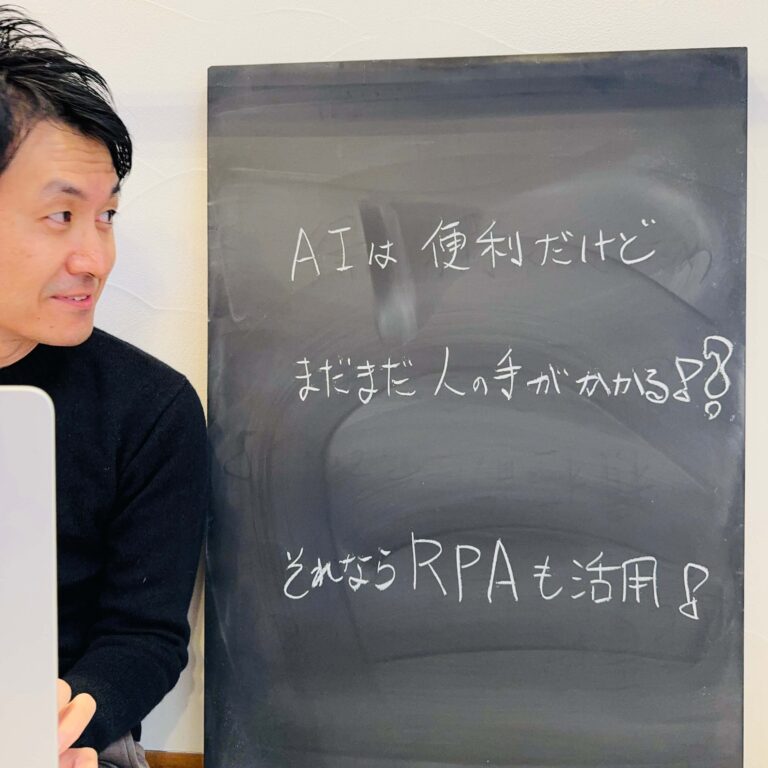 AIは便利だけど
まだまだ人の手がかかる!?
それならRPAも活用!